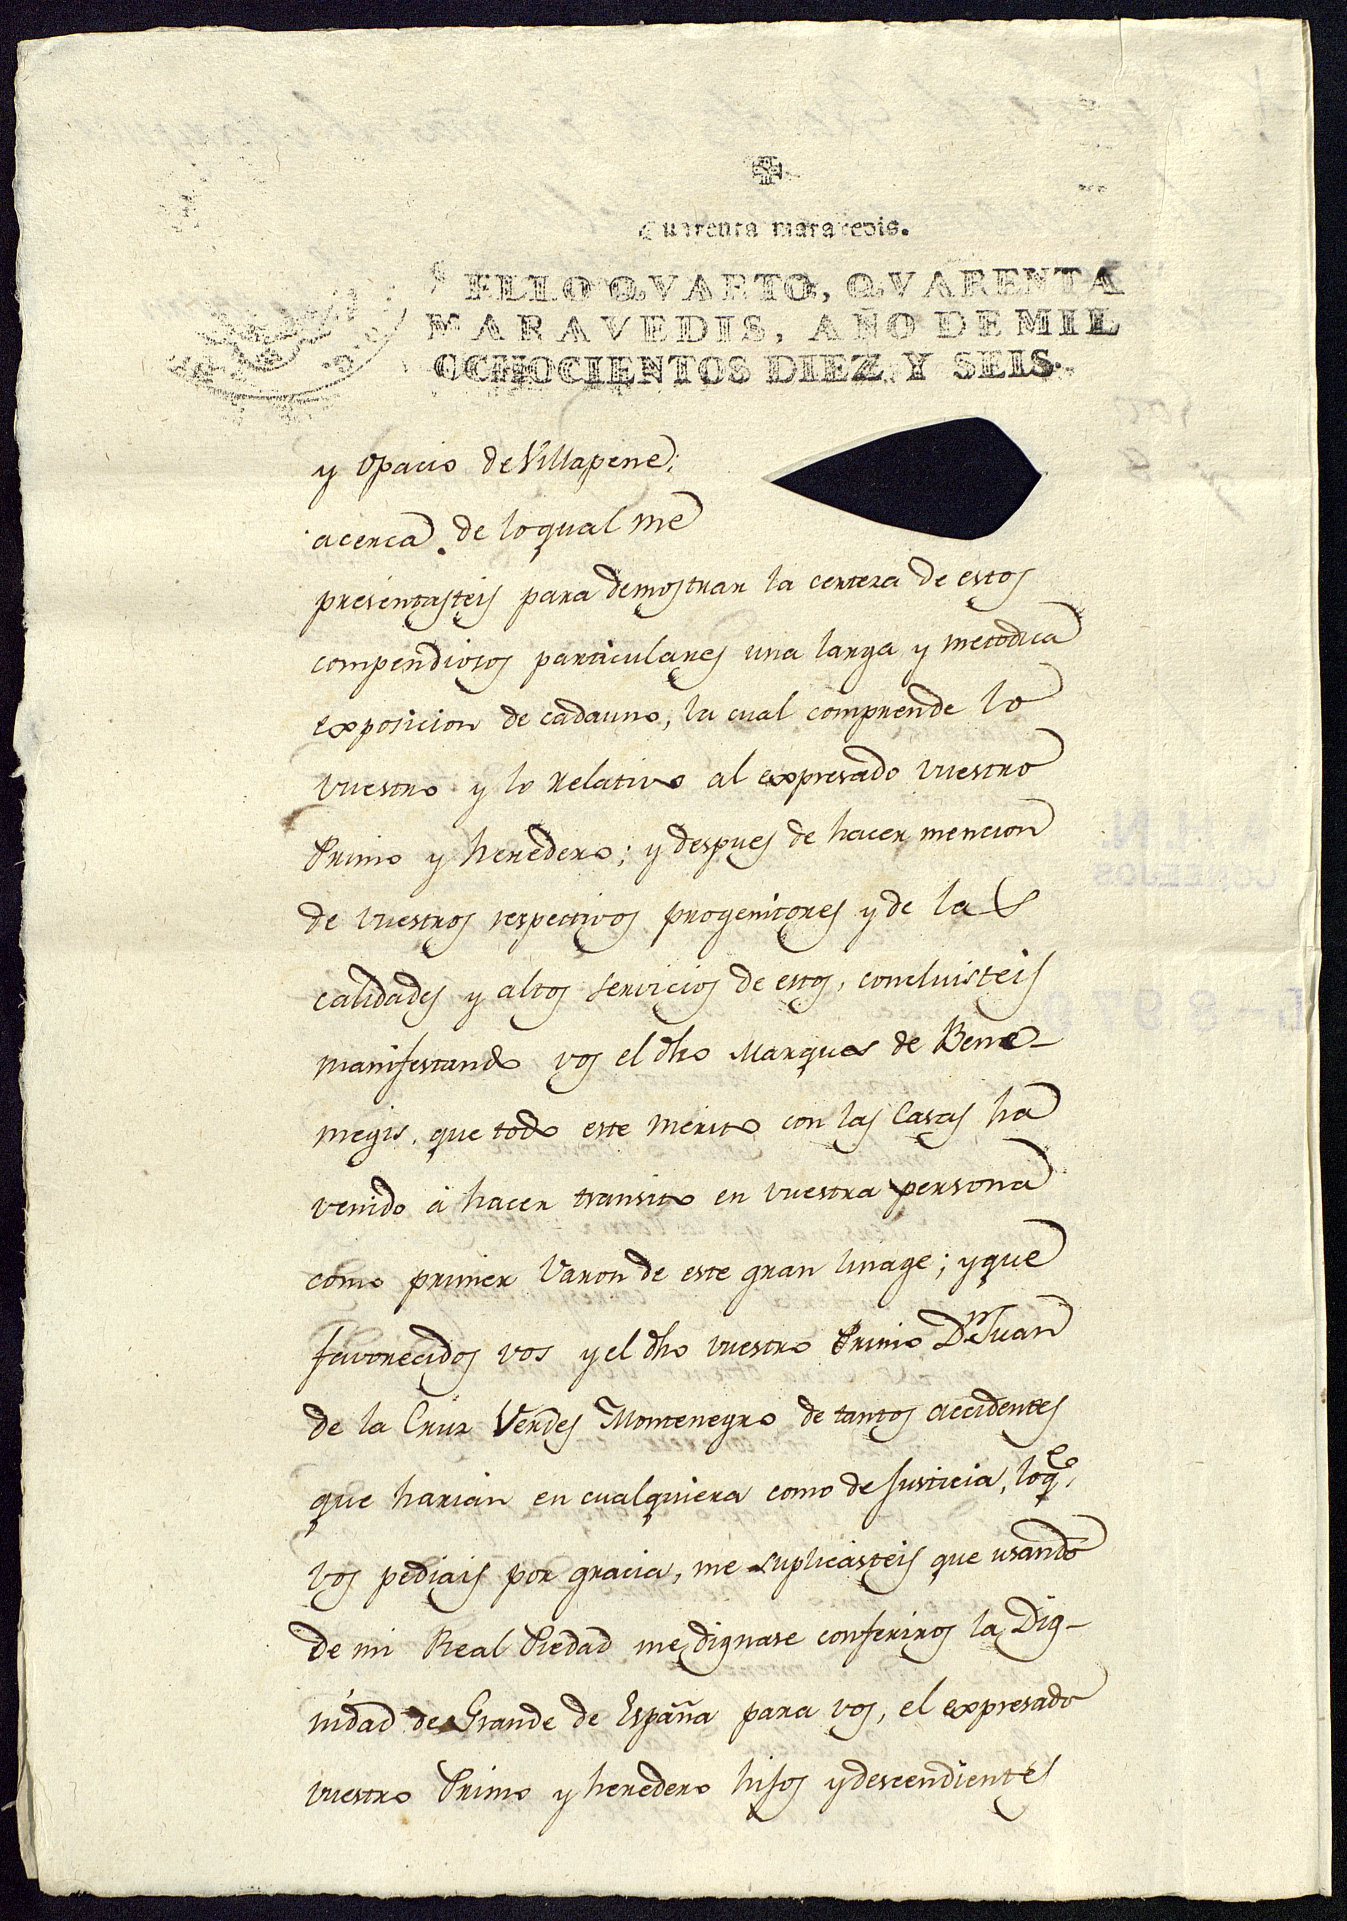 Quarenta maravedis.
SELLO QVARTO, QVARENTA
MARAVEDIS, AÑO DE MIL
OCHOCIENTOS DIEZ Y SEIS.
y opacio de Villapene;
acerca de lo qual me
presentasteis para demostrar la certeza de estos
compendiosos particulares una larga y metodica
exposicion de cada uno, la cual comprende lo
vuestro y lo relativo al expresado vuestro
Primo y heredero; y despues de hacer mencion
de vuestros respectivos progenitores y de las
calidades y altos servicios de estos, concluisteis
manifestando vos el dho Marques de Bene-
megis, que todo este merito con las Casas, ha
venido á hacer transito en vuestra persona
como primer Varon de este gran linage; y que
favorecidos vos y el dho vuestro Primo Dn Juan
de la Cruz Verdes Montenegro de tantos accidentes
que harian en cualquiera como de Justicia, lo qe.
vos pediais por gracia, me suplicásteis que usando
de mi Real Piedad me dignase conferiros la Dig-
nidad de Grande de España para vos, el expresado
vuestro Primo y heredero hijos y descendientes